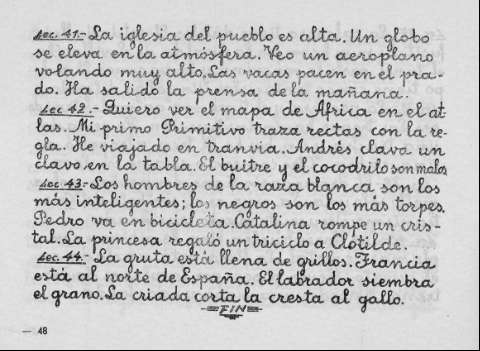 Lec. 41.- La iglesia del pueblo es alta. Un globo
se eleva en la atmósfera. Veo un aeroplano
volando muy alto. Las vacas pacen en el pra-
do. Ha salido la prensa de la mañana.
Lec. 42.- Quiero ver el mapa de África en el at-
las. Mi primo Primitivo traza rectas con la re-
gla. He viajado en tranvia. Andrés clava un
clavo en la tabla. El buitre y el cocodrilo son malos
Lec. 43- Los hombres de la raza blanca son los
más inteligentes; los negros son los más torpes.
Pedro va en bicicleta. Catalina rompe un cris-
tal. La princesa regaló un triciclo a Clotilde.
Lec. 44.- La gruta está llena de grillos. Francia
está al norte de España. El labrador siembra
el grano. La criada corta la cresta al gallo.
FIN
— 48